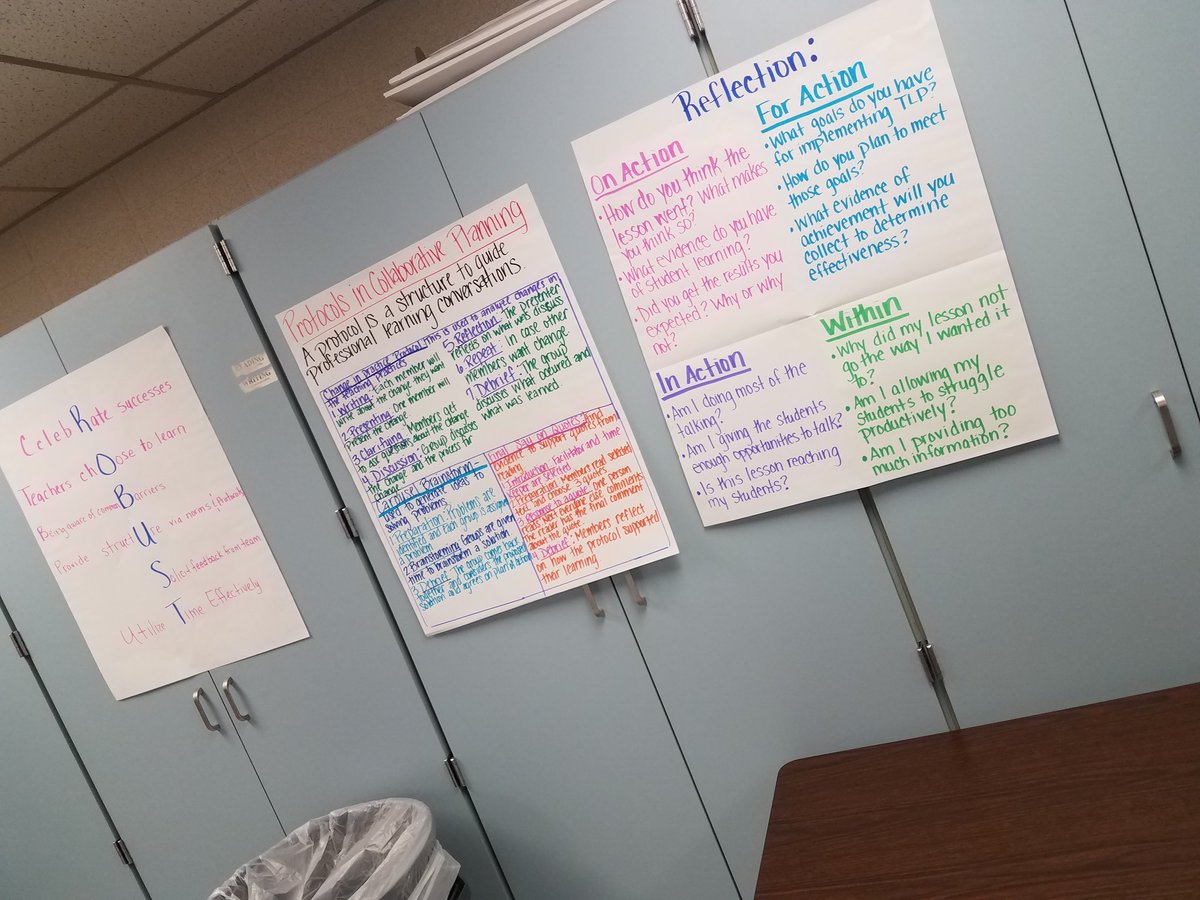 CelebRate successes
Teachers chOose to learn
Being aware of common Barriers
Provide structUre via norms/protocols
Solicit feedback from team
Utilize Time Effectively
READING
WRITING
Protocols in Collaborative Planning
A protocol is a structure to guide
professional learning conversations.
Change in Practice Protocol This is used to analyze changes in
the teaching practices
1. Writing. Each member will
write about the change they want
2. Presenting. One member will
present the change.
3. Clarifying. Members get
to ask questions about the change
4. Discussion. Group discusses
the change and the process for
change
5. Reflection. The presenter
reflects on what was discuss
6. Repeat. In case other
members want change
7. Debrief. The group
discusses what occured and
what was learned.
Carousel Brainstorm
used to generate ideas to
solving problems
1. Preparation. Problems are
identified and each group is assigned
a problem
2. Brainstorming. Groups are given
time to brainstorm a solution
3. Debrief. The group comes back
together and considers the provided
solution and agrees on plan of action
Final Say on Quotes: find
evidence to support quotes from
reading
1. Introduction. Facilitator and time
keeper are selected
2. Preparation. Members read selected
text and choose 2-3 quotes
3. Response to a quote. one person
reads first everyone else comments
the reader has the final comment
about the quote.
4. Debrief. Members reflect
on how the protocol supported
their learning
Reflection:
On Action
•How do you think the
lesson went? What makes
you think so?
•What evidence do you have
of student learning?
•Did you get the results you
expected? Why or why
not?
For Action
•What goals do you have
for implementing TLP?
•How do you plan to meet
those goals?
•What evidence of
achievement will you
collect to determine
effectiveness?
In Action
•Am I doing most of the
talking?
•Am I giving the students
enough opportunities to talk?
•Is this lesson reaching
my students?
Within
•Why did my lesson not
go the way I wanted it
to?
•Am I allowing my
students to struggle
productively?
•Am I providing too
much information?